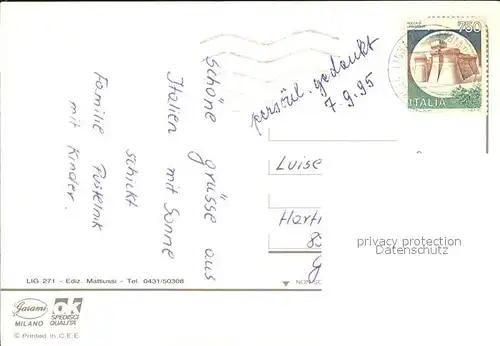 750
ITALIA
persönl. gedankt
7.9.95
schöne grüsse aus
Italien mit Sonne
schickt
Familie
mit Kinder.
Luise
privacy protection
Datenschutz
LIG 271 - Ediz. Mattiussi - Tel. 0431/50308
Garami
MILANO
ok
SPEDISCI
QUALITÀ
© Printed in C.E.E.